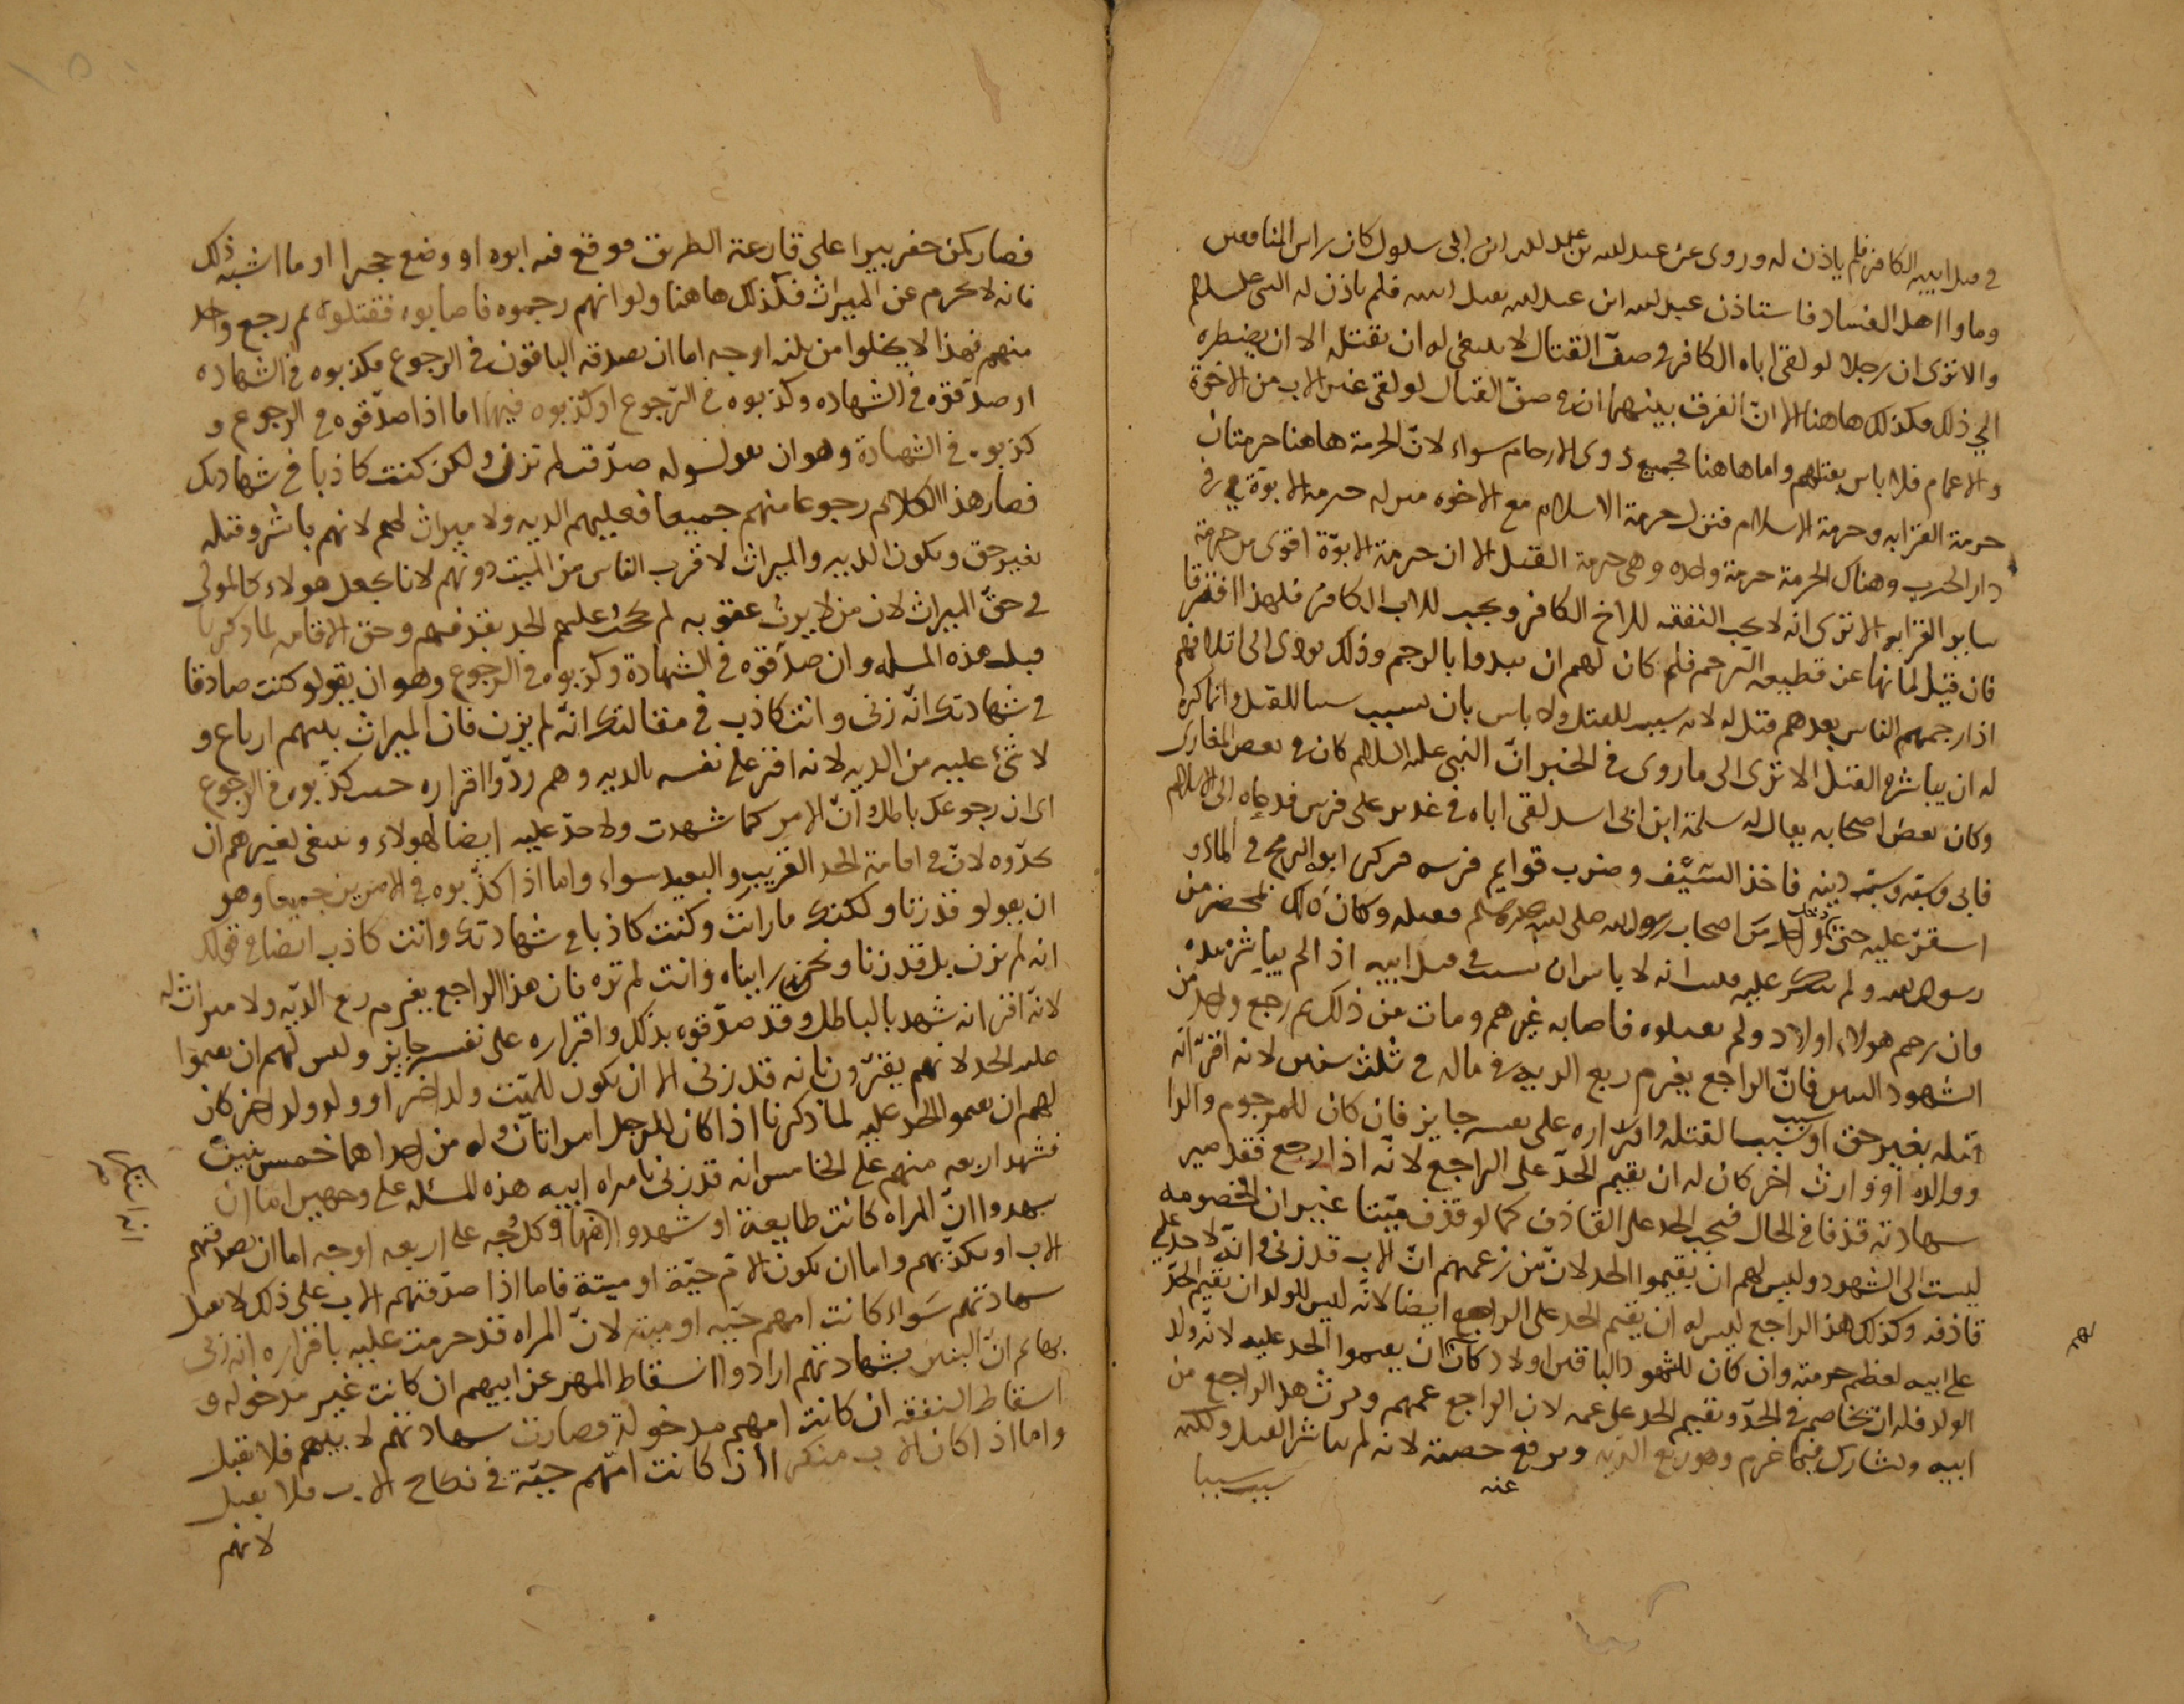 في قتل ابيه الكافر فلم ياذن له وروى عن عبد لله بن عبد لله ابن ابي سلول كان راس المنافقين
وماوا اهل الفساد فاستاذن عبد لله ابن عبد لله بقتل ابيه فلم ياذن له النبي عليه السلام
والا ترى ان رجلا لو لقى اباه الكافر في صفّ القتال لا ينبغي له ان يقتله الا ان يضطره
الي ذلك فكذلك هاهنا الا انّ الفرق بينهما ان في صفّ القتال لو لقى غير الاب من الاخوة
والاعمام فلا باس بقتلهم واما هاهنا فجميع ذوى الارحام سواء لانّ الحرمة هاهنا حرمتان
حرمة القرابه وحرمة الاسلام فنزل حرمة الاسلام مع الاخوه منزله حرمة الابوّة في
دار الحرب وهناك الحرمة حرمة واحده وهي حرمة القتل الا ان حرمة الابوّة اقوى من حرمة
ساير القرابه الا ترى انه لا يجب النفقه للاخ الكافر ويجب للاب الكافر فلهذا افترقا
فان قيل لما نها عن قطيعه الرحم فلم كان لهم ان يبدوا بالرجم وذلك يودى الى اتلافهم
اذا رجمهم الناس بعدهم قتل له لانه سبب للقتل ولا باس بان يسبب سببا للقتل وانما كره
له ان يباشر القتل الا ترى الى ما روى في الخبر انّ النبي عليه السلام كان في بعض المغازى
وكان بعض اصحابه يقال له سلمة ابن ابي اسد لقى اباه في غدير على فرس فدعاه الى الاسلام
فابى وسبّه وسبّ دينه فاخذ السَيْف وضرب قوايم فرسه فركز ابوه الرمح في الماء و
استقرّ عليه حتى جاء واحد من اصحاب رسول لله صلى لله عليه وسلم فقتله وكان ذلك بمحضر من
رسول لله ولم ينكر عليه فثبت انه لا باس ان يسبب في قتل ابيه اذا لم يباشر بيده
وان رجم هولاء اولاد ولم يقتلوه فاصابه غيرهم ومات من ذلك ثم رجع واحد من
الشهود البنين فانّ الراجع يغرم ربع الديه في ماله في ثلث سنين لانه اقرّ انه
قتله بغير حق او سبّب سببا لقتله واقراره على نفسه جايز فان كان للمرجوم والد
ووالده او وارث اخر كان له ان يقيم الحدّ على الراجع لانّه اذا رجع فقد صير
شهادته قذفا في الحال فيجب الحد على القاذف كما لو قذف ميّتا غير ان الخصومه
ليست الى الشهود وليس لهم ان يقيموا الحد لانّ من زعمهم انّ الاب قد زنى وانّه لا حد على
قاذفه وكذلك هذا الراجع ليس له ان يقيم الحد على الراجع ايضا لانّه ليس للولد ان يقيم الحدّ
على ابيه لعظم حرمته وان كان للشهود الباقين اولاد كان ان يقيموا الحد عليه لانّه ولد
الولد فله ان يخاصم في الحدّ ويقيم الحد على عمه لان الراجع عمهم ويرث هذا الراجع من
ابيه ويشارك فيما غرم وهو ربع الديه ويرفع حصته لانه لم يباشر القتل ولكنه
عنه
سبب سببا
فصار كمن حفر بيرا على قارعة الطريق فوقع فيه ابوه او وضع حجرا او ما اشبه ذلك
فانه لا يحرم عن الميراث فكذلك هاهنا ولو انهم رجموه فاصابوه فقتلوه ثم رجع واحد
منهم فهذا لا يخلوا من ثلثه اوجه اما ان يصدقه الباقون في الرجوع ويكذبوه في الشهاده
او صدّقوه في الشهاده وكذبوه في الرّجوع او كذبوه فيهما اما اذا صدّقوه في الرجوع و
كذبوه في الشهادة وهو ان يقولوا له صدّقت لم تزن ولكن كنت كاذبا في شهادتك
فصار هذا الكلام رجوعا منهم جميعا فعليهم الديه ولا ميراث لهم لانهم باشروا قتله
بغير حق ويكون الديه والميراث لاقرب الناس من الميت دونهم لانا نجعل هولاء كالموتى
في حقّ الميراث لان من لا يرث عقوبه لم يحجب عليهم الحد بقذفهم وحق الاقامه لما ذكرنا
قبل هذه المسله وان صدّقوه في الشهادة وكذبوه في الرجوع وهو ان يقولوا كنت صادقا
في شهادتك انّه زنى وانت كاذب في مقالتك انّه لم يزن فان الميراث بينهم ارباع و
لا شيء عليه من الديه لانه اقر على نفسه بالديه وهم ردّوا اقراره حيث كذّبوه في الرجوع
اى ان رجوعك باطل انّ الامر كما شهدت ولا حدّ عليه ايضا لهولاء وينبغي لغيرهم ان
يحدّوه لانّ في اقامة الحد القريب والبعيد سواء واما اذا كذّبوه في الامرين جميعا وهو
ان يقولو قد زنا ولكنك ما رايت وكنت كاذبا في شهادتك وانت كاذب ايضا في قولك
انه لم يزن بل قد زنا ونحن رايناه وانت لم تره فان هذا الراجع يغرم ربع الديّه ولا ميراث له
لانّه اقرّ انه شهد بالباطل وقد صدّقوه بذلك واقراره على نفسه جايز وليس لهم ان يقيموا
عليه الحد لانهم يقرّون بانه قد زنى الا ان يكون للميّت ولد اخر او ولد ولد اخر كان
لهم ان يقيموا الحد عليه لما ذكرنا اذا كان للرجل امراتان وله من احداهما خمس بنين
فشهد اربعه منهم على الخامس انه قد زنى بامراه ابيه هذه المسئله على وجهين اما ان
يشهدوا انّ المراه كانت طايعة او شهدوا وكل وجه على اربعه اوجه اما ان يصدقهم
الاب او يكذّبهم واما ان يكون الامّ حيّة او ميتة فاما اذا صدّقهم الاب على ذلك لا تقبل
شهادتهم سَواء كانت امهم حيّه او ميته لانّ المراه قد حرمت عليه باقراره انه زنى
بها ثم انّ البنين بشهادتهم ارادوا اسقاط المهر عن ابيهم ان كانت غير مدخوله و
اسقاط النفقه ان كانت امهم مدخولة فصارت شهادتهم لابيهم فلا تقبل
واما اذا كان الاب منكرا اذا كانت امّهم حيّة في نكاح الاب فلا يقبل
لانهم